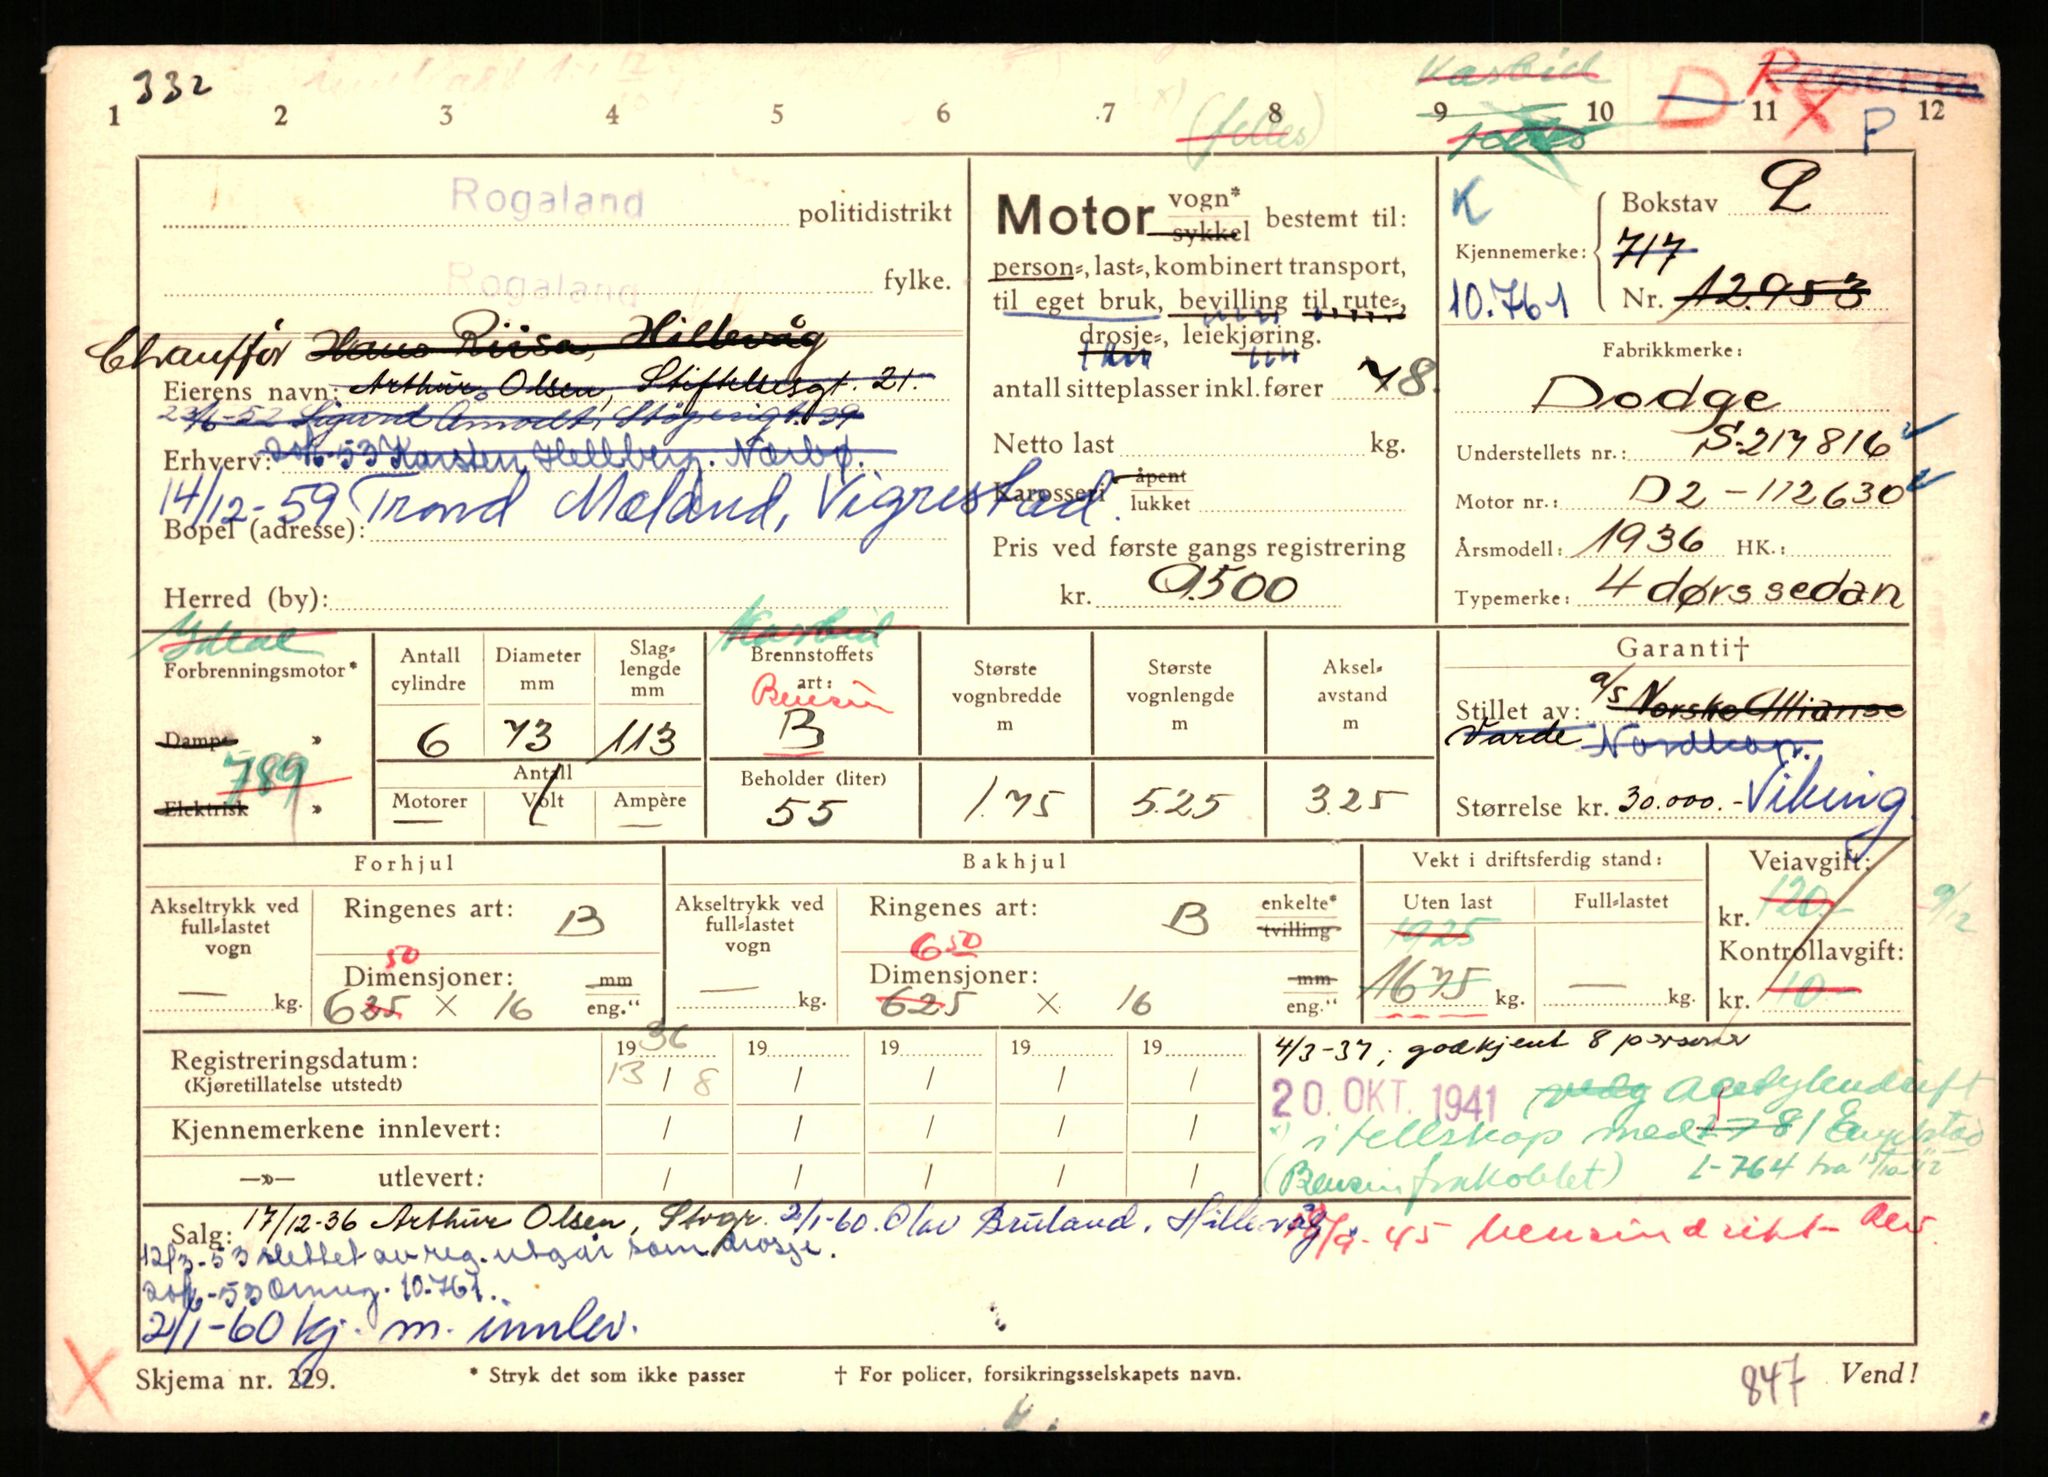 332
Karbid
D
Reserve
1 2 3 4 5 6 7 8 9 10 11 12
(felles)
P
Rogaland politidistrikt
Rogaland fylke.
Chauffør Hans Riisa, Hillevåg
Eierens navn: Arthur Olsen, Stiftelsesgt. 21.
23/6-52 Sigurd
Erhverv: 20/6-53 Karsten Hellberg. Nærbø.
14/12-59 Trond Mæland, Vigrestad.
Bopel (adresse):
Herred (by):
Motor vogn* sykkel bestemt til:
person-, last-, kombinert transport,
til eget bruk, bevilling til rute-,
drosje-, leiekjøring.
antall sitteplasser inkl. fører 7 8.
Netto last kg.
Karosseri åpent lukket
Pris ved første gangs registrering
kr. 9.500
K
Bokstav L
Kjennemerke: 717
10.761 Nr. 12.953
Fabrikkmerke:
Dodge
Understellets nr.: S-217816
Motor nr.: D2-112630
Årsmodell: 1936 HK.:
Typemerke: 4 dørs sedan
Ideal
Forbrenningsmotor*
Damp- »
789
Elektrisk »
Antall cylindre 6
Diameter mm 73
Slag-lengde mm 113
Antall
Motorer — Volt Ampère —
Karbid
Brennstoffets art:
Bensin
B
Beholder (liter) 55
Største vognbredde m 1.75
Største vognlengde m 5.25
Aksel-avstand m 3.25
Garanti†
Stillet av: a/s Norske Allianse
Varde Nordkap.
Størrelse kr. 30.000.- Viking
Forhjul
Akseltrykk ved full-lastet vogn — kg.
Ringenes art: B
50
Dimensjoner: mm
625 × 16 eng."
Bakhjul
Akseltrykk ved full-lastet vogn — kg.
Ringenes art: B enkelte* tvilling
6.50
Dimensjoner: mm
625 × 16 eng."
Vekt i driftsferdig stand:
Uten last Full-lastet
1925
1675 kg. — kg.
Veiavgift:
kr. 120.- 9/12
Kontrollavgift:
kr. 10-
Registreringsdatum: 19 36 19 19 19 19
(Kjøretillatelse utstedt) 13/8 / / / /
Kjennemerkene innlevert: / / / / /
—»— utlevert: / / / / /
4/3-37; godkjent 8 personer
20. OKT. 1941 Acetylendrift
x) i fellskap med L-781 Engelstad
(Bensin frakoblet) L-764 fra
Salg: 17/12-36 Arthur Olsen, Stvgr. 2/1-60. Olav Bruland, Hillevåg
-45 bensindrift
12/3-53 slettet av reg. utgår som drosje.
20/6-53 Omreg. 10.761.
2/1-60 kj. m. innlev.
Skjema nr. 229.
* Stryk det som ikke passer
† For policer, forsikringsselskapets navn.
847
Vend!